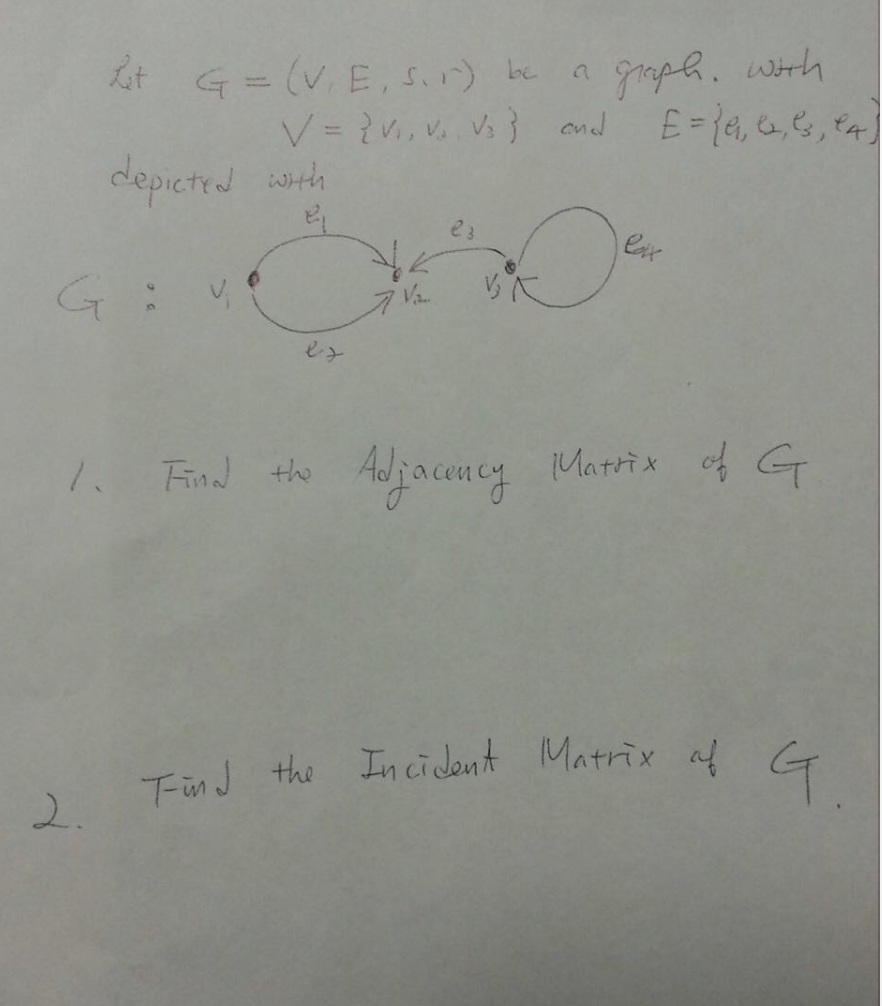 Let G = (V, E, s, r) be a graph. with
V = {v₁, v₂, v₃} and E={e₁, e₂, e₃, e₄}
depicted with
e₁
e₃
e₄
G : v₁
v₂
v₃
e₂
1. Find the Adjacency Matrix of G
2. Find the Incident Matrix of G.